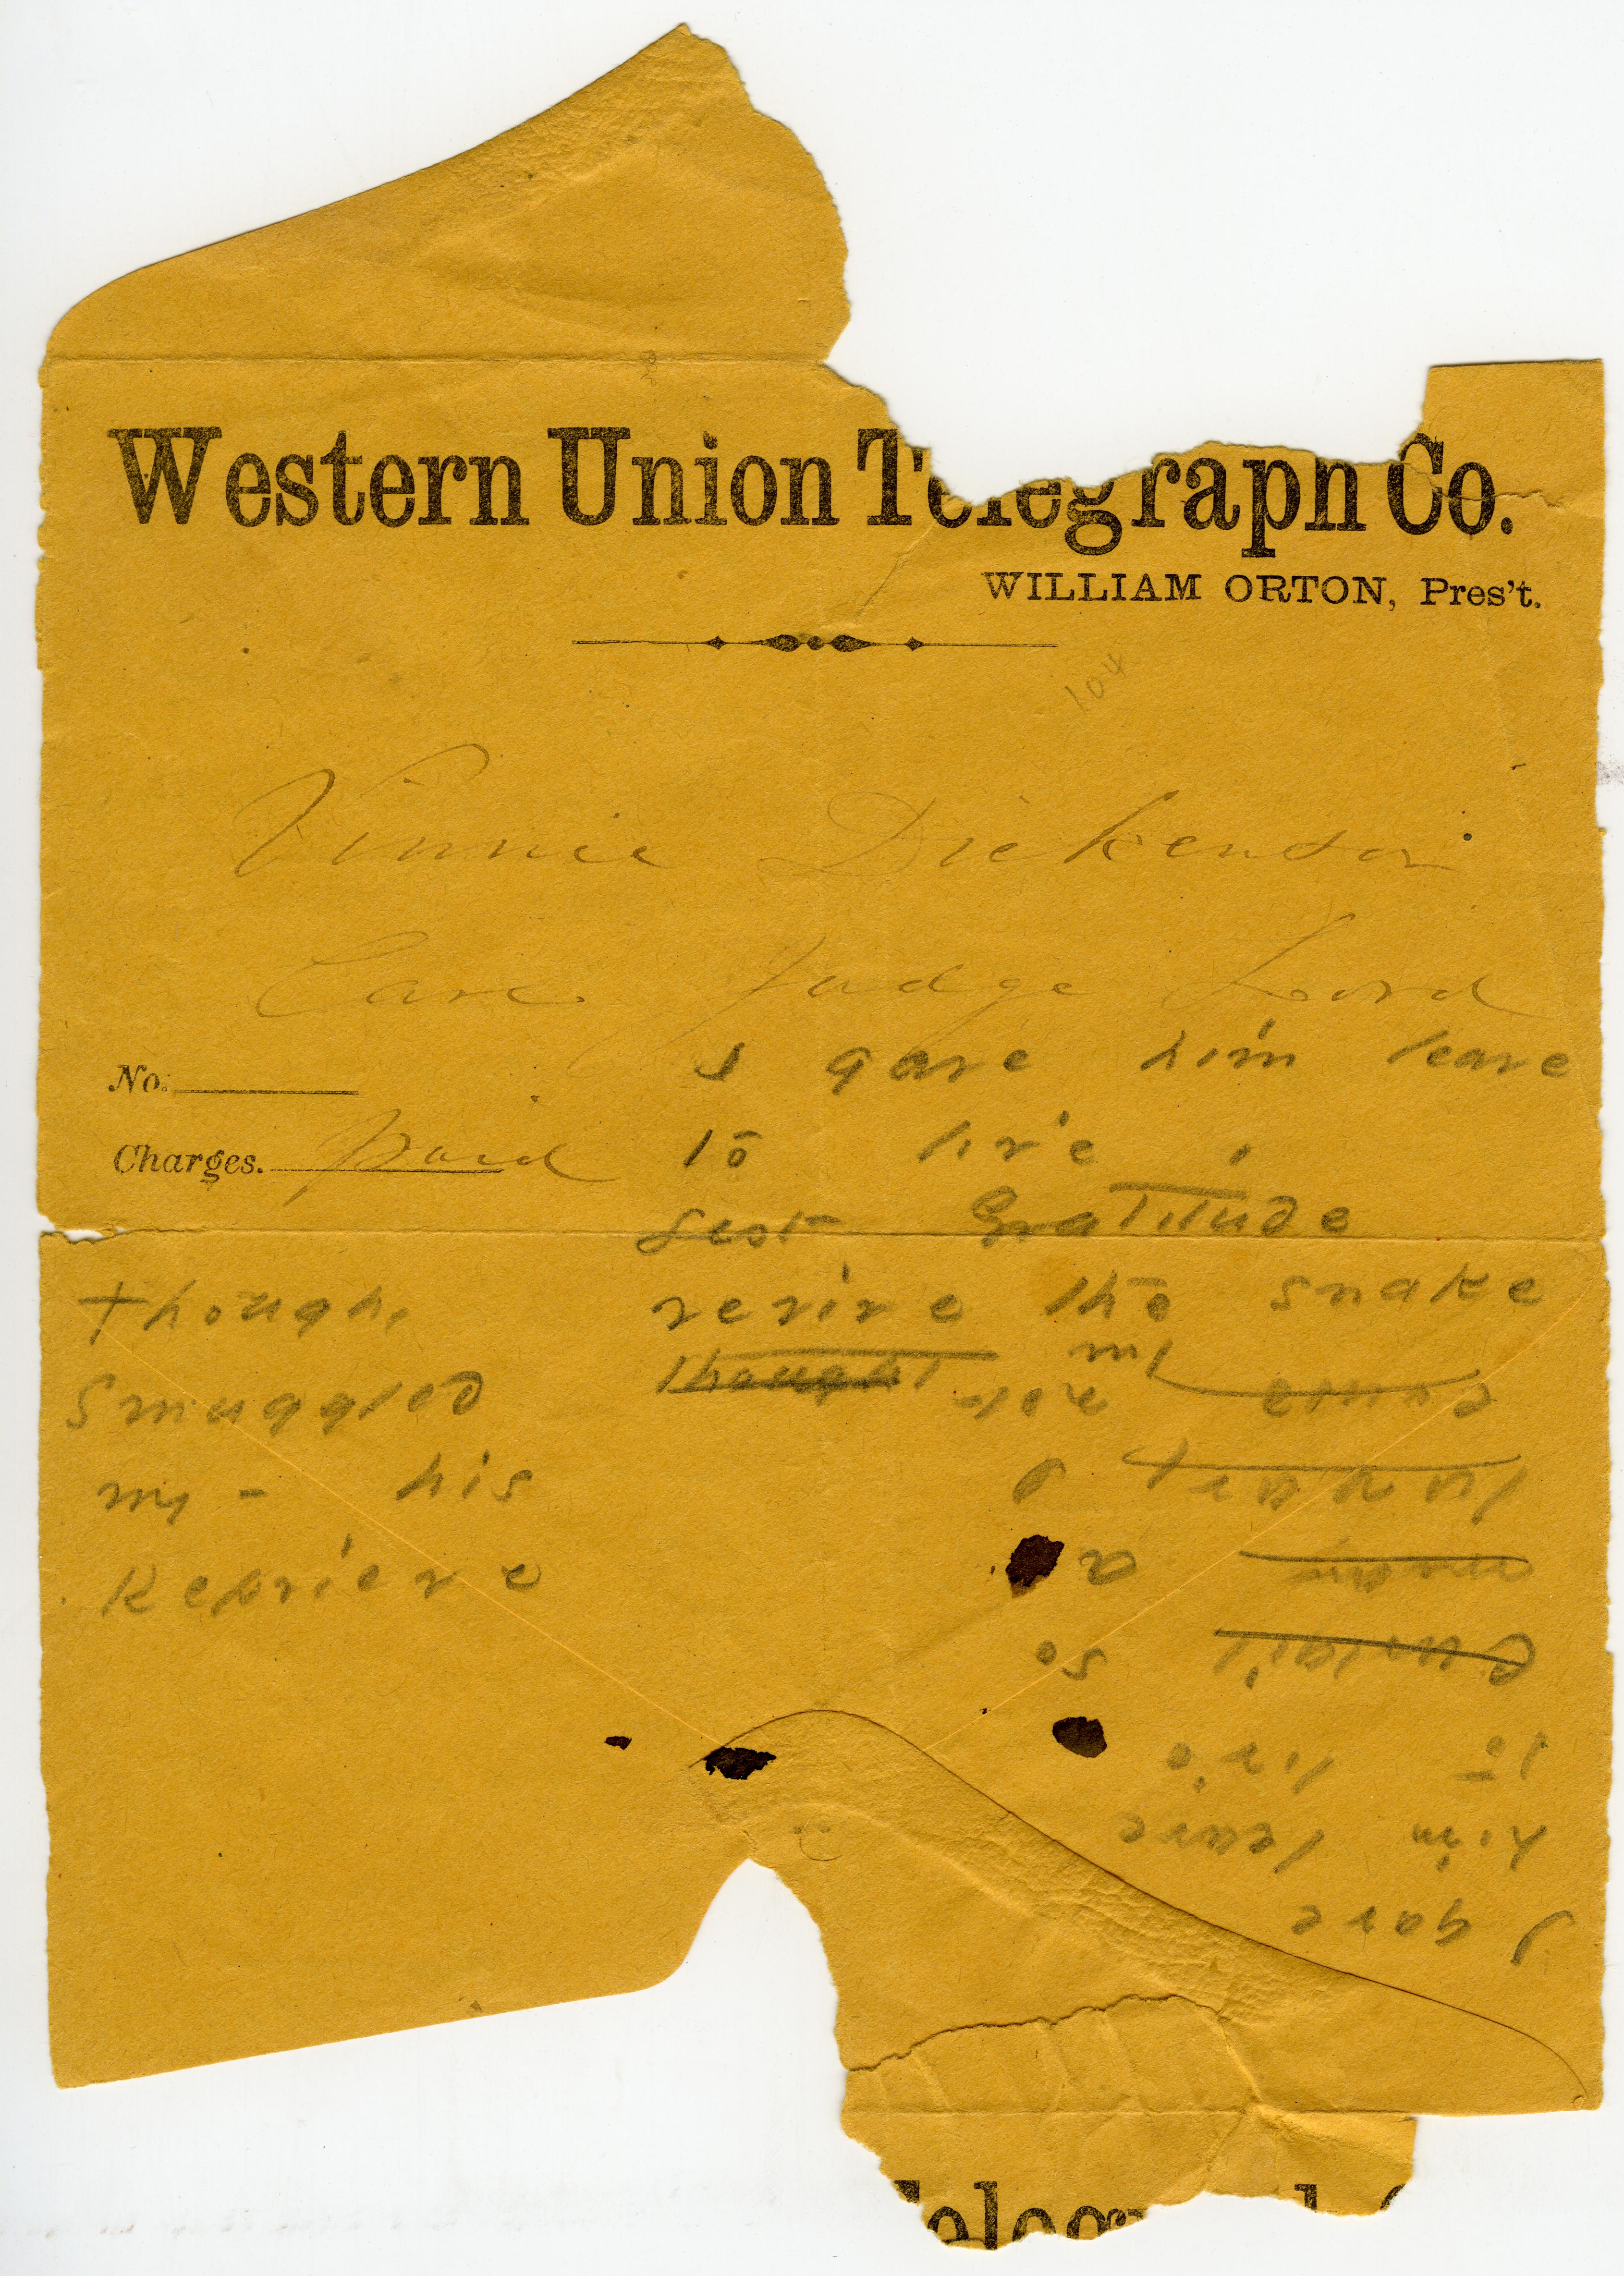 Western Union Telegraph Co.
WILLIAM ORTON, Pres't.
104
Vinnie Dickenson
Care Judge Lord
No.
Charges. paid
I gave him leave
to live,
Lest Gratitude
revive the snake
though
Though
smuggled
my - his
Reprieve
I gave
him leave
to live
so
a
Telegraph